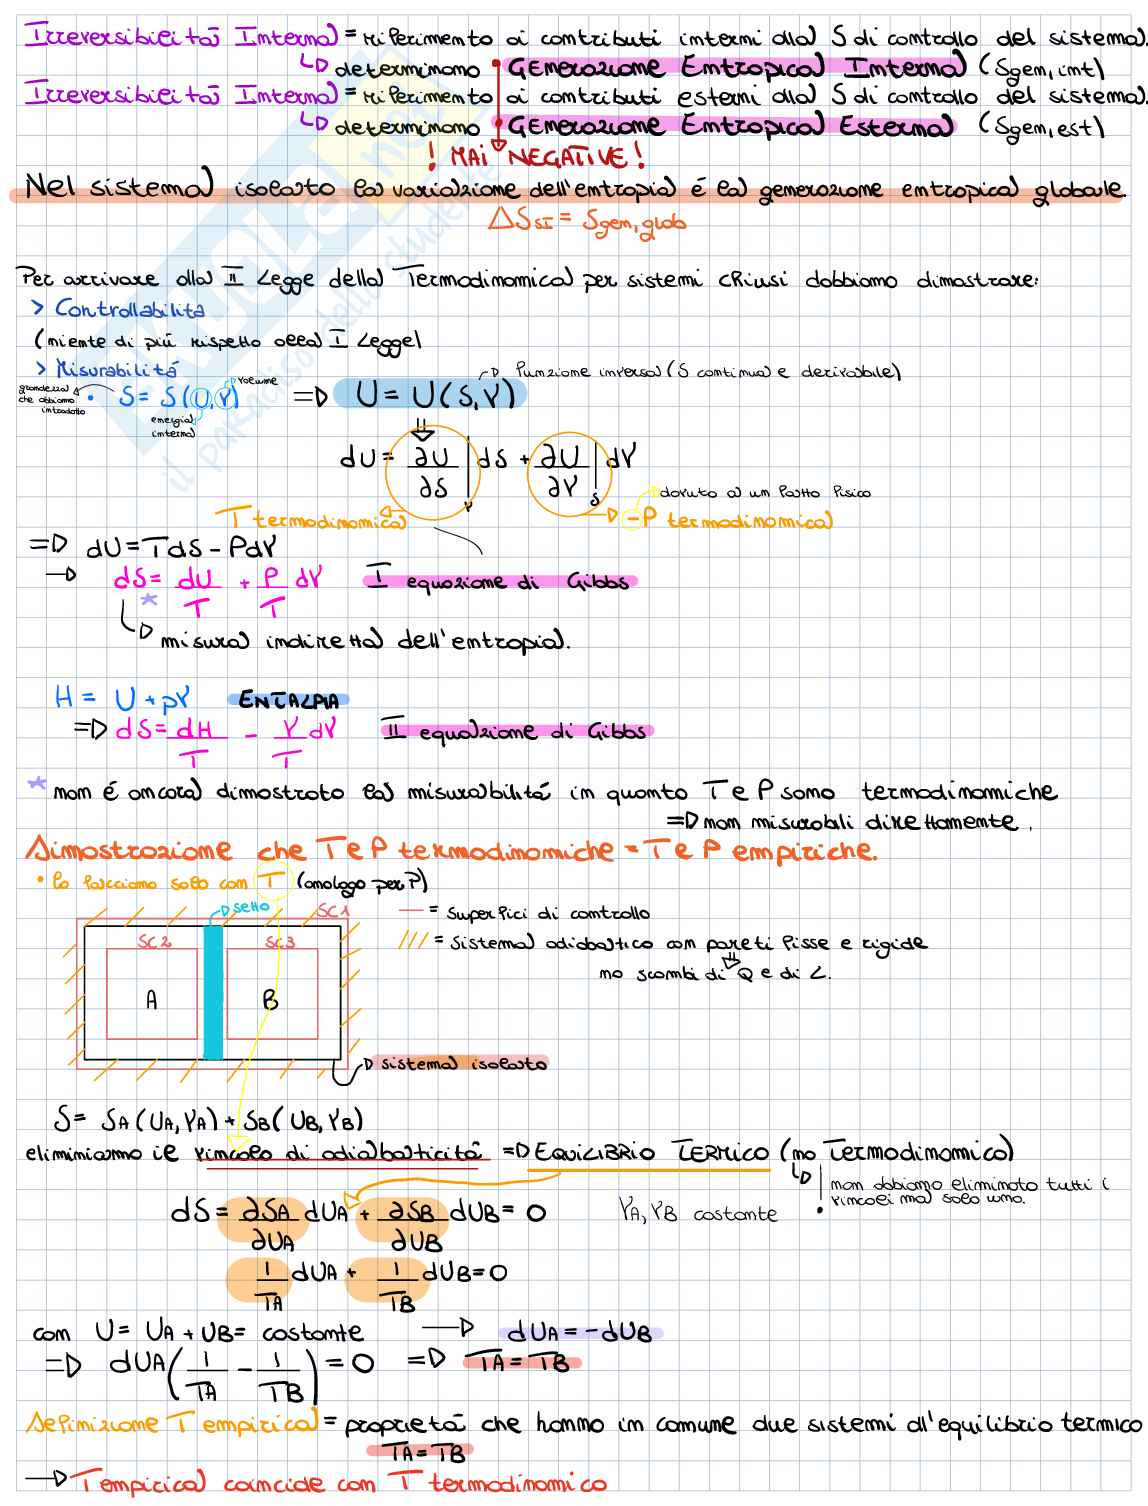 Irreversibilità Interna = riferimento ai contributi interni alla S di controllo del sistema.
↳ determinano • Generazione Entropica Interna (Sgen, int)
Irreversibilità Interna = riferimento ai contributi esterni alla S di controllo del sistema.
↳ determinano • Generazione Entropica Esterna (Sgen, est)
! MAI NEGATIVE!
Nel sistema isolato la variazione dell'entropia é la generazione entropica globale.
ΔS SI = Sgen, glob
Per arrivare alla II Legge della Termodinamica per sistemi chiusi dobbiamo dimostrare:
> Controllabilità
(niente di più rispetto alla I Legge)
> Misurabilità
grandezza che abbiamo introdotto • S = S(U,V) volume ⇒ U = U(S,V) → funzione inversa (S continua e derivabile)
energia interna
dU = ∂U/∂S |V dS + ∂U/∂V |S dV
→ dovuto a un fatto fisico
T termodinamica → -P termodinamica
⇒ dU = TdS - PdV
→ dS = dU/T + P/T dV I equazione di Gibbs
*
↳ misura indiretta dell'entropia.
H = U + pV ENTALPIA
⇒ dS = dH/T - V/T dV II equazione di Gibbs
* non é ancora dimostrato la misurabilità in quanto T e P sono termodinamiche
⇒ non misurabili direttamente.
Dimostrazione che T e P termodinamiche = T e P empiriche.
• lo facciamo solo con T (analogo per P)
→ setto
SC1
— = superfici di controllo
SC2 SC3
/// = sistema adiabatico con pareti fisse e rigide
no scambi di Q e di L.
A B
→ sistema isolato
S = SA(UA, VA) + SB(UB, VB)
eliminiamo il vincolo di adiabaticità ⇒ EQUILIBRIO TERMICO (no Termodinamico)
↳ non abbiamo eliminato tutti i
vincoli ma solo uno.
dS = ∂SA/∂UA dUA + ∂SB/∂UB dUB = 0 VA, VB costante
1/TA dUA + 1/TB dUB = 0
con U = UA + UB = costante → dUA = -dUB
⇒ dUA(1/TA - 1/TB) = 0 ⇒ TA = TB
Definizione T empirica = proprietà che hanno in comune due sistemi all'equilibrio termico
TA = TB
→ T empirica coincide con T termodinamico